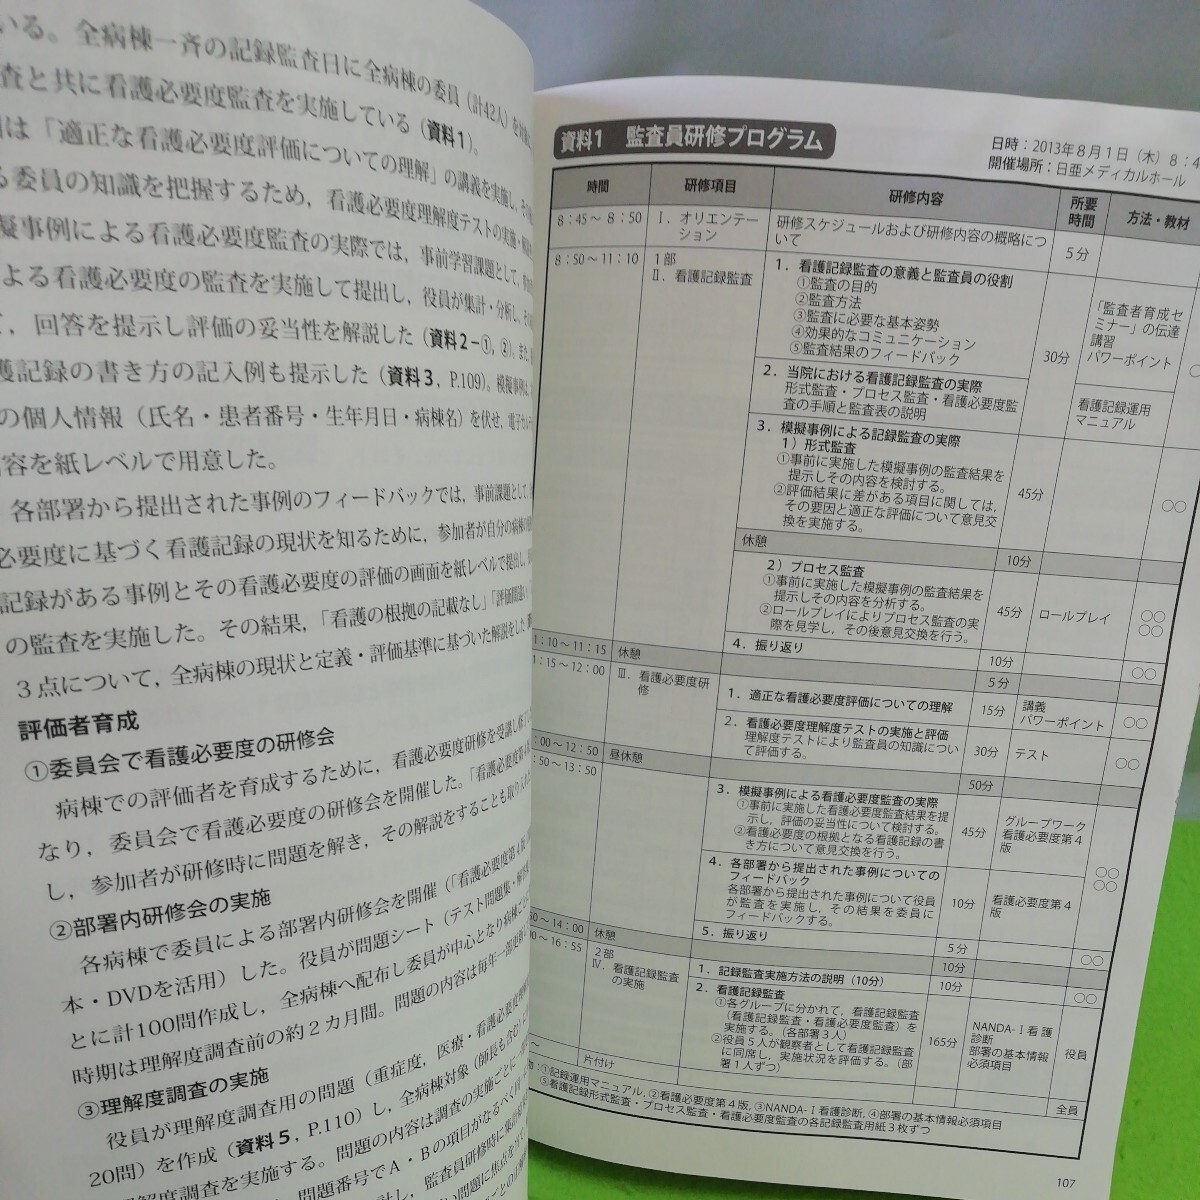 いる。全病棟一斉の記録監査日に全病棟の委員(計42人)を
査と共に看護必要度監査を実施している(資料1)。
は「適正な看護必要度評価についての理解」の講義を実施し,
る委員の知識を把握するため,看護必要度理解度テストの実施・
擬事例による看護必要度監査の実際では,事前学習課題として,
よる看護必要度の監査を実施して提出し,役員が集計・分析し,
て,回答を提示し評価の妥当性を解説した(資料2-①,②)。また,
護記録の書き方の記入例も提示した(資料3,P.109)。模擬事例は,
の個人情報(氏名・患者番号・生年月日・病棟名)を伏せ,電子カル
内容を紙レベルで用意した。
各部署から提出された事例のフィードバックでは,事前課題として,
必要度に基づく看護記録の現状を知るために,参加者が自分の病棟の
記録がある事例とその看護必要度の評価の画面を紙レベルで提出し,
の監査を実施した。その結果,「看護の根拠の記載なし」「評価間違い」
3点について,全病棟の現状と定義・評価基準に基づいた解説をした
評価者育成
①委員会で看護必要度の研修会
病棟での評価者を育成するために,看護必要度研修を受講し修了
なり,委員会で看護必要度の研修会を開催した。「看護必要度第4
し,参加者が研修時に問題を解き,その解説をすることも取り入れ
②部署内研修会の実施
各病棟で委員による部署内研修会を開催(「看護必要度第4版」
本・DVDを活用)した。役員が問題シート(テスト問題集・解答
とに計100問作成し,全病棟へ配布し委員が中心となり病棟ごとに
時期は理解度調査前の約2カ月間。問題の内容は毎年一部更新
③理解度調査の実施
役員が理解度調査用の問題(重症度,医療・看護必要度理解
20問)を作成(資料5,P.110)し,全病棟対象(師長も含む)に
理解度調査を実施する。問題の内容は調査の実施ごとに
問題番号でA・Bの項目がなるべく
資料1 監査員研修プログラム
日時:2013年8月1日(木)8:4
開催場所:日亜メディカルホール
時間 研修項目 研修内容 所要時間 方法・教材
8:45~8:50 Ⅰ.オリエンテーション 研修スケジュールおよび研修内容の概略について 5分
8:50~11:10 1部
Ⅱ.看護記録監査
1.看護記録監査の意義と監査員の役割
①監査の目的
②監査方法
③監査に必要な基本姿勢
④効果的なコミュニケーション
⑤監査結果のフィードバック
30分
「監査者育成セ
ミナー」の伝達
講習
パワーポイント
2.当院における看護記録監査の実際
形式監査・プロセス監査・看護必要度監
査の手順と監査表の説明
看護記録運用
マニュアル
3.模擬事例による記録監査の実際
1)形式監査
①事前に実施した模擬事例の監査結果を
提示しその内容を検討する。
②評価結果に差がある項目に関しては,
その要因と適正な評価について意見交
換を実施する。
45分 ○○
休憩 10分
2)プロセス監査
①事前に実施した模擬事例の監査結果を
提示しその内容を分析する。
②ロールプレイによりプロセス監査の実
際を見学し,その後意見交換を行う。
45分 ロールプレイ ○○
○○
4.振り返り 10分 ○○
1:10~11:15 休憩 5分
1:15~12:00 Ⅲ.看護必要度研修
1.適正な看護必要度評価についての理解 15分 講義
パワーポイント ○○
2.看護必要度理解度テストの実施と評価
理解度テストにより監査員の知識につい
て評価する。
30分 テスト ○○
:00~12:50 昼休憩 50分
:50~13:50
3.模擬事例による看護必要度監査の実際
①事前に実施した看護必要度監査結果を提
示し,評価の妥当性について検討する。
②看護必要度の根拠となる看護記録の書
き方について意見交換を行う。
45分 グループワーク
看護必要度第4
版
○○
○○
4.各部署から提出された事例についての
フィードバック
各部署から提出された事例について役員
が監査を実施し,その結果を委員に
フィードバックする。
10分 看護必要度第4
版
5.振り返り 5分 ○○
50~14:00 休憩 10分
00~16:55 2部
Ⅳ.看護記録監査
の実施
1.記録監査実施方法の説明(10分) 10分 ○○
2.看護記録監査
①各グループに分かれて,看護記録監査
(看護記録監査・看護必要度監査)を
実施する。(各部署3人)
②役員5人が観察者として看護記録監査
に同席し,実施状況を評価する。(部
署1人ずつ)
165分 NANDA-Ⅰ看護
診断
部署の基本情報
必須項目
役員
~ 片付け 全員
物:①記録運用マニュアル,②看護必要度第4版,③NANDA-Ⅰ看護診断,④部署の基本情報必須項目
⑤看護記録形式監査・プロセス監査・看護必要度監査の各記録監査用紙3枚ずつ
107